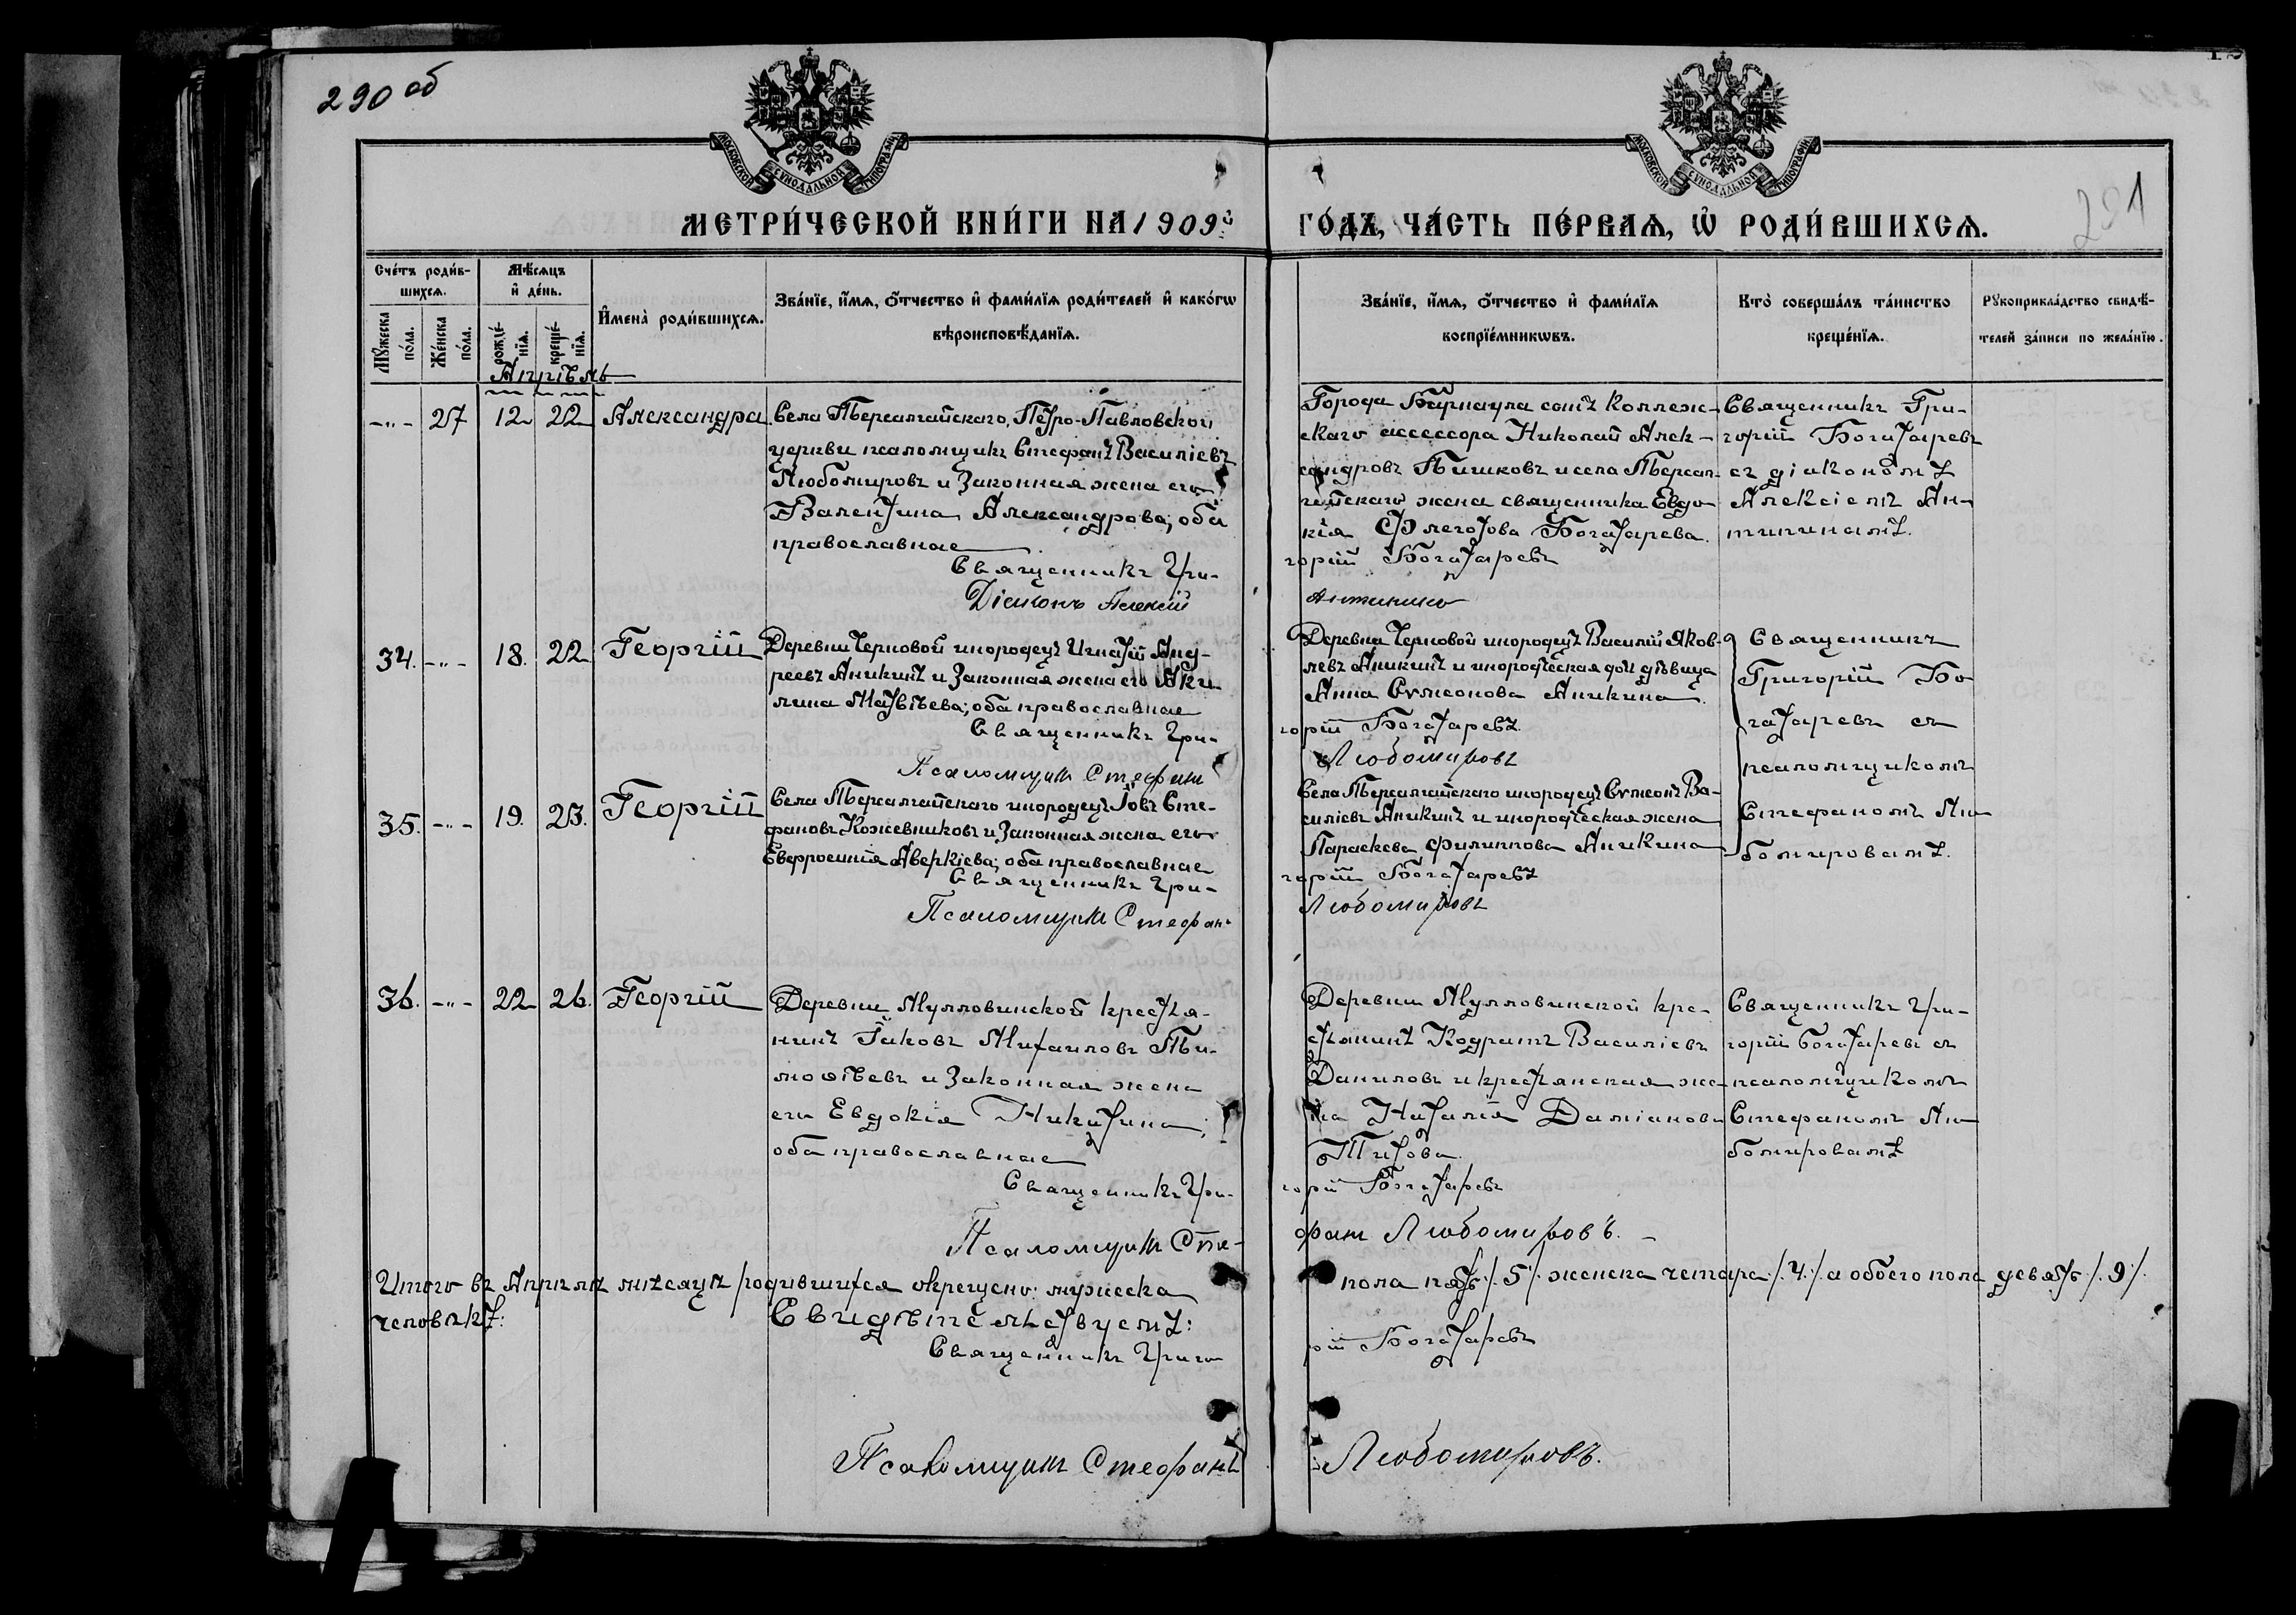 290 об
МОСКОВСКОЙ СѴНОДАЛЬНОЙ ТИПОГРАФІИ
МОСКОВСКОЙ СѴНОДАЛЬНОЙ ТИПОГРАФІИ
291
МЕТРИ́ЧЕСКОЙ КНИ́ГИ НА 1909й ГО́ДЪ, ЧА́СТЬ ПЕ́РВАЯ, Ѡ҆ РОДИ́ВШИХСЯ.
Сче́тъ роди́в-
шихся.
Му́жеска
по́ла.
Же́нска
по́ла.
Мѣ́сяцъ
и҆ де́нь.
рожде́-
нїя.
креще́-
нїя.
И҆мена̀ роди́вшихся.
Зва́нїе, и҆́мя, ѻ҆́тчество и҆ фами́лїя роди́телей и҆ како́гѡ
вѣроисповѣ́данїя.
Зва́нїе, и҆́мя, ѻ҆́тчество и҆ фами́лїя
воспрїе́мникѡвъ.
Кто̀ соверша́лъ та́инство
креще́нїя.
Рꙋкоприкла́дство свидѣ́-
телей за́писи по жела́нїю.
Апрѣль
-„- 27 12 22 Александра
Села Тьерсалтайскаго, Петро-Павловской
церкви псаломщикъ Стефанъ Василіевъ
Любомировъ и Законная жена его
Валентина Александрова; оба
православнае
Священникъ Гри-
Діаконъ Алексій
Города Барнаула сынъ Коллеж-
скаго ассессора Николай Алек-
сандровъ Пишковъ и села Тьерсал-
тайскаго жена священника Евдо-
кія Флеготова Богатарева.
горій Богатаревъ
Антипинъ
Священникъ Гри-
горій Богатаревъ
съ діакономъ
Алексіемъ Ан-
типинамъ.
34. -„- 18. 22 Георгій
Деревни Черновой инородецъ Игнатій Анд-
реевъ Аникинъ и Законная жена его Аки-
лина Матвѣева; оба православнае
Священникъ Гри-
Псаломщикъ Стефанъ
Деревни Черновой инородецъ Василій Яков-
левъ Аникинъ и инородческая дочь дѣвица
Анна Сѵмеонова Аникина.
горій Богатаревъ
Любомировъ
Священникъ
Григорій Бо
гатаревъ съ
псаломщикомъ
Стефаномъ Лю
бомировамъ.
35. -„- 19. 23. Георгій
Села Тьерсалтайскаго инородецъ Іовъ Сте-
фановъ Кожевниковъ и Законная жена его
Евфросинія Аверкіева; оба православнае
Священникъ Гри-
Псаломщикъ Стефанъ
Села Тьерсалтайскаго инородецъ Сѵмеонъ Ва-
силіевъ Аникинъ и инородческая жена
Параскева Филиппова Аникина
горій Богатаревъ
Любомировъ
36. -„- 22 26. Георгій
Деревни Мулловинской крестья-
нинъ Іаковъ Михаиловъ Ти-
моѳѣевъ и Законная жена
его Евдокія Никитина;
оба православнае
Священникъ Гри-
Псаломщикъ Сте-
Деревни Мулловинской кре-
стьянинъ Кодратъ Василіевъ
Даниловъ и крестьянская же-
на Наталія Даміанова
Титова.
горій Богатаревъ
фанъ Любомировъ. -
Священникъ Гри-
горій Богатаревъ съ
псаломщикомъ
Стефаномъ Лю
бомировамъ
Итого въ Апрѣлѣ мѣсяцѣ родившихся окрещено: мужеска пола пять /. 5 /. женска четыре /. 4. /. а обоего пола девять /. 9 /.
человѣкъ:
Свидѣтельствуемъ:
Священникъ Григо рій Богатаревъ
Псаломщикъ Стефанъ Любомировъ.